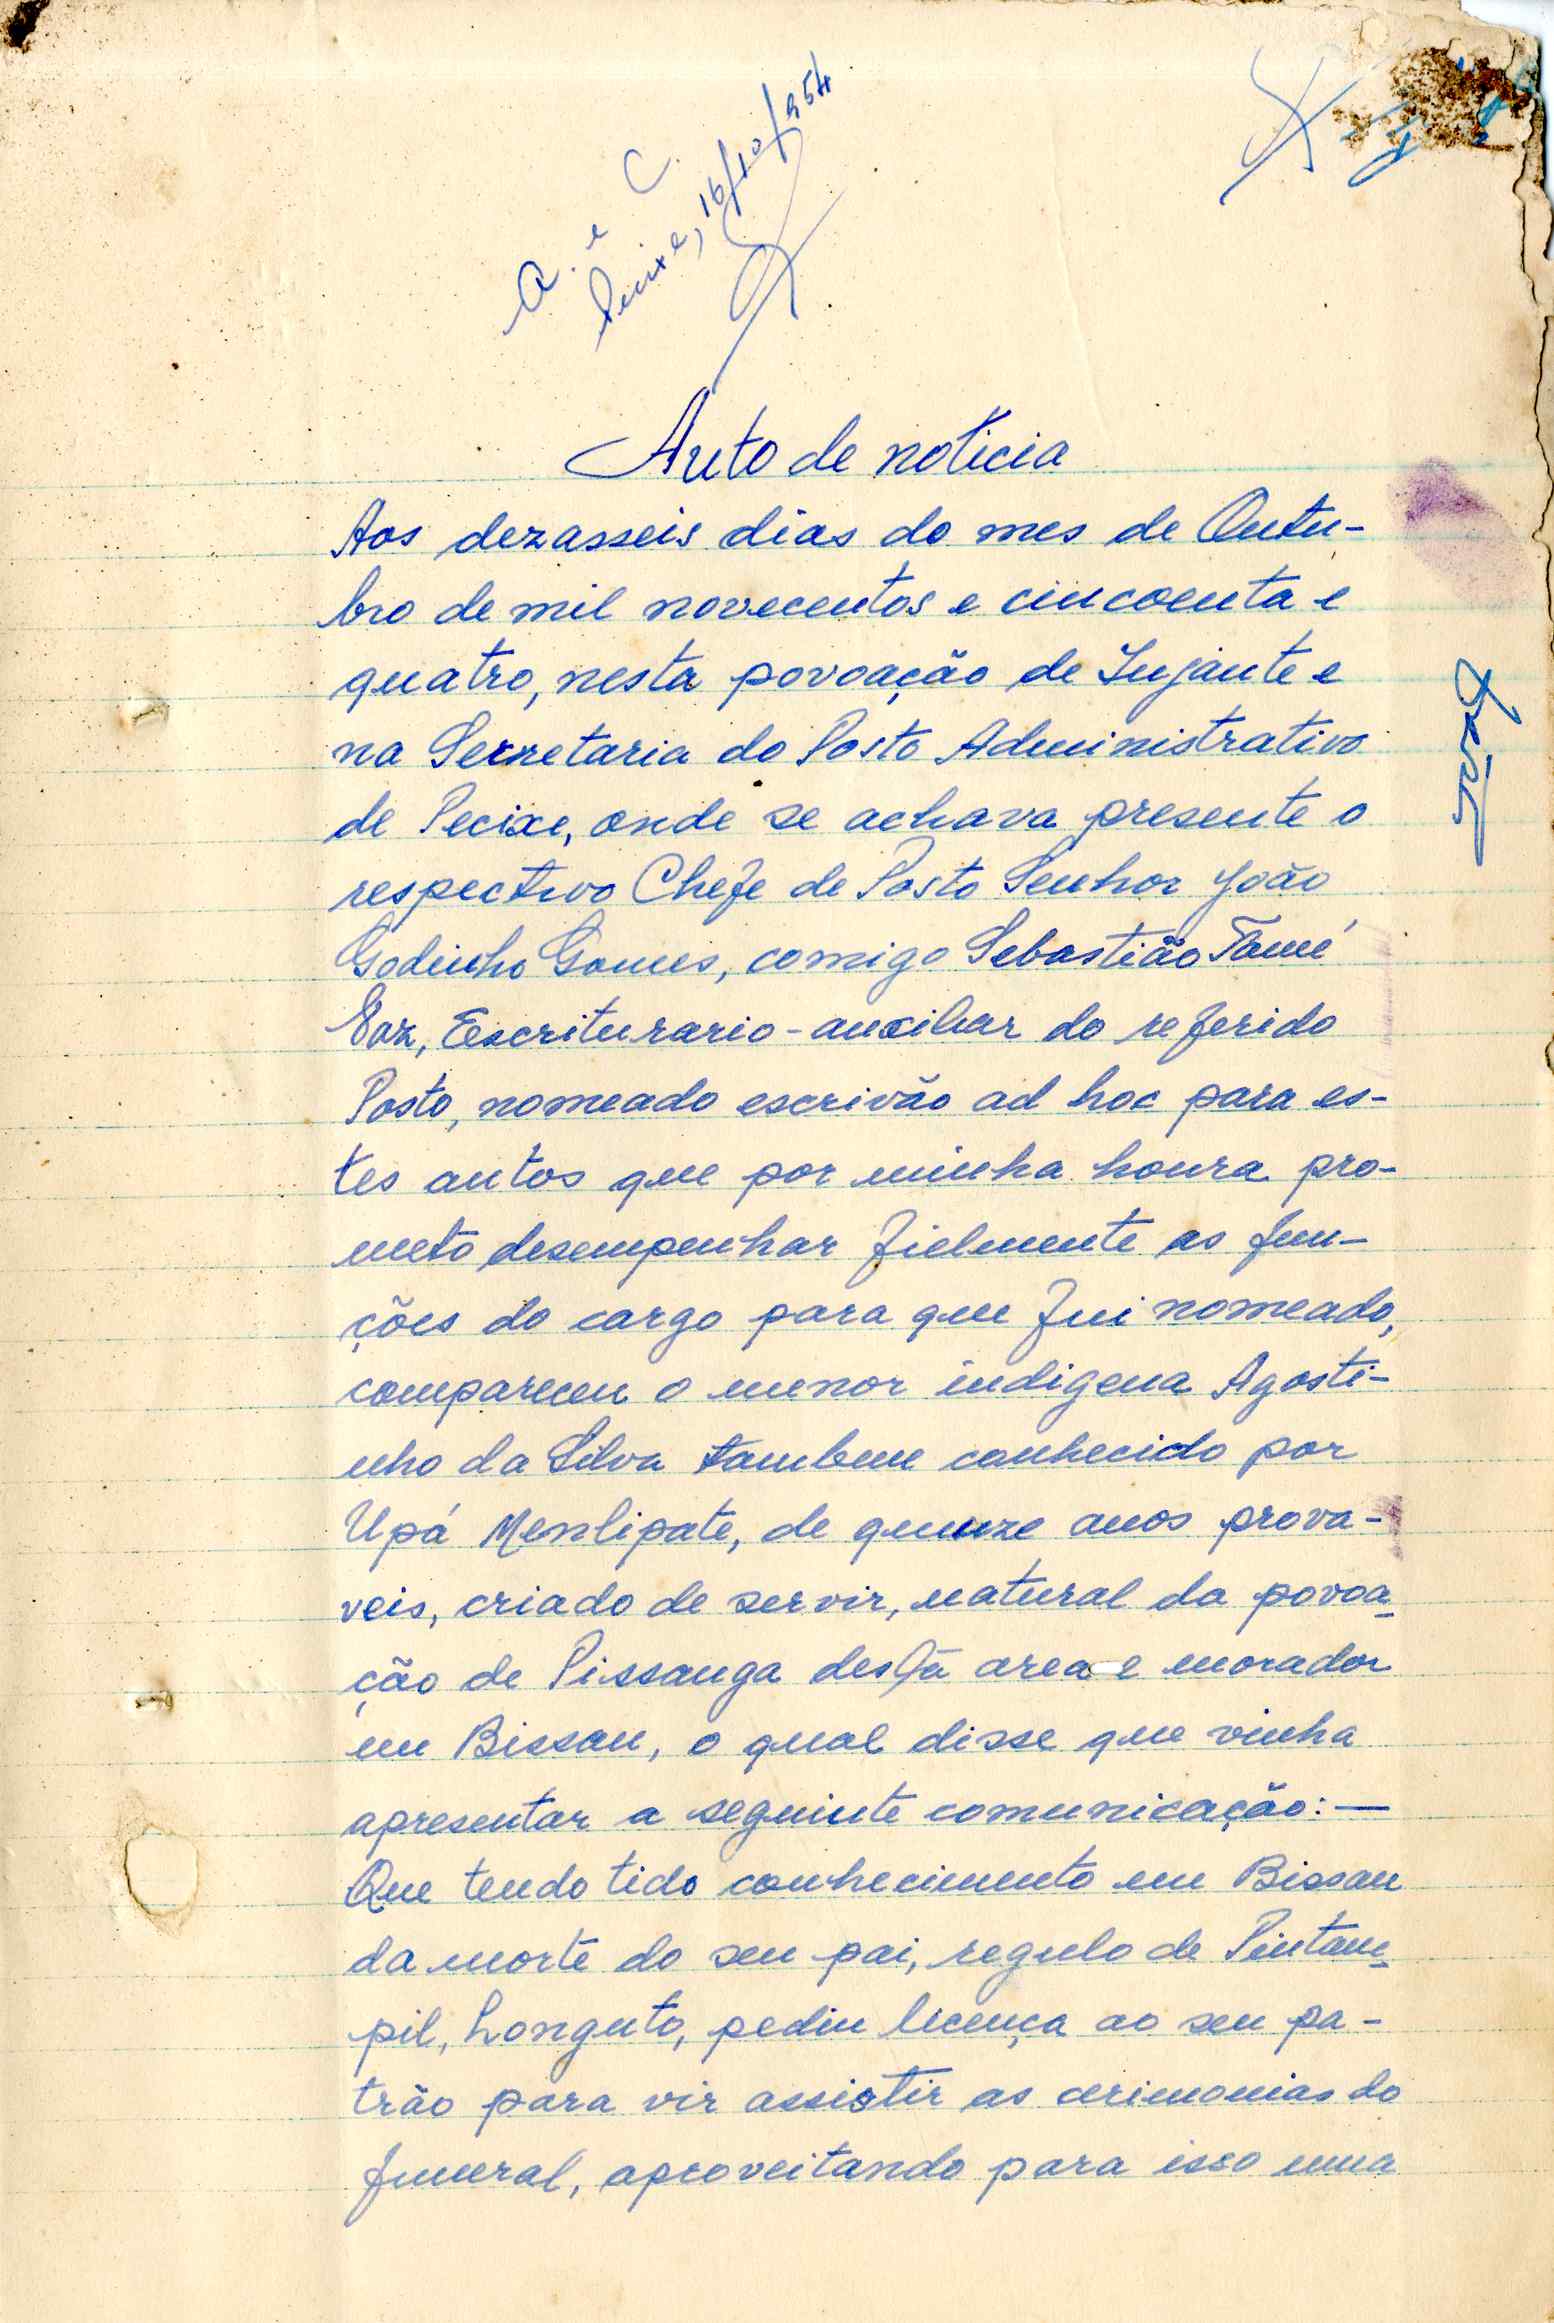 A. e C.
Pecixe, 16/10/954
Auto de noticia
Aos dezasseis dias do mes de Outu-
bro de mil novecentos e cincoenta e
quatro, nesta povoação de Jujante e
na Secretaria do Posto Administrativo
de Pecixe, onde se achava presente o
respectivo Chefe de Posto Senhor João
Godinho Gomes, comigo Sebastião Tomé
Vaz, Escriturario-auxiliar do referido
Posto, nomeado escrivão ad hoc para es-
tes autos que por minha honra pro-
meto desempenhar fielmente as fun-
ções do cargo para que fui nomeado,
compareceu o menor indigena Agosti-
nho da Silva tambem conhecido por
Upá Menlipate, de quinze anos prova-
veis, criado de servir, natural da povoa-
ção de Pissanga desta area e morador
em Bissau, o qual disse que vinha
apresentar a seguinte comunicação: —
Que tendo tido conhecimento em Bissau
da morte do seu pai, regulo de Pintam-
pil, Longuto, pediu licença ao seu pa-
trão para vir assistir as cerimonias do
funeral, aproveitando para isso uma